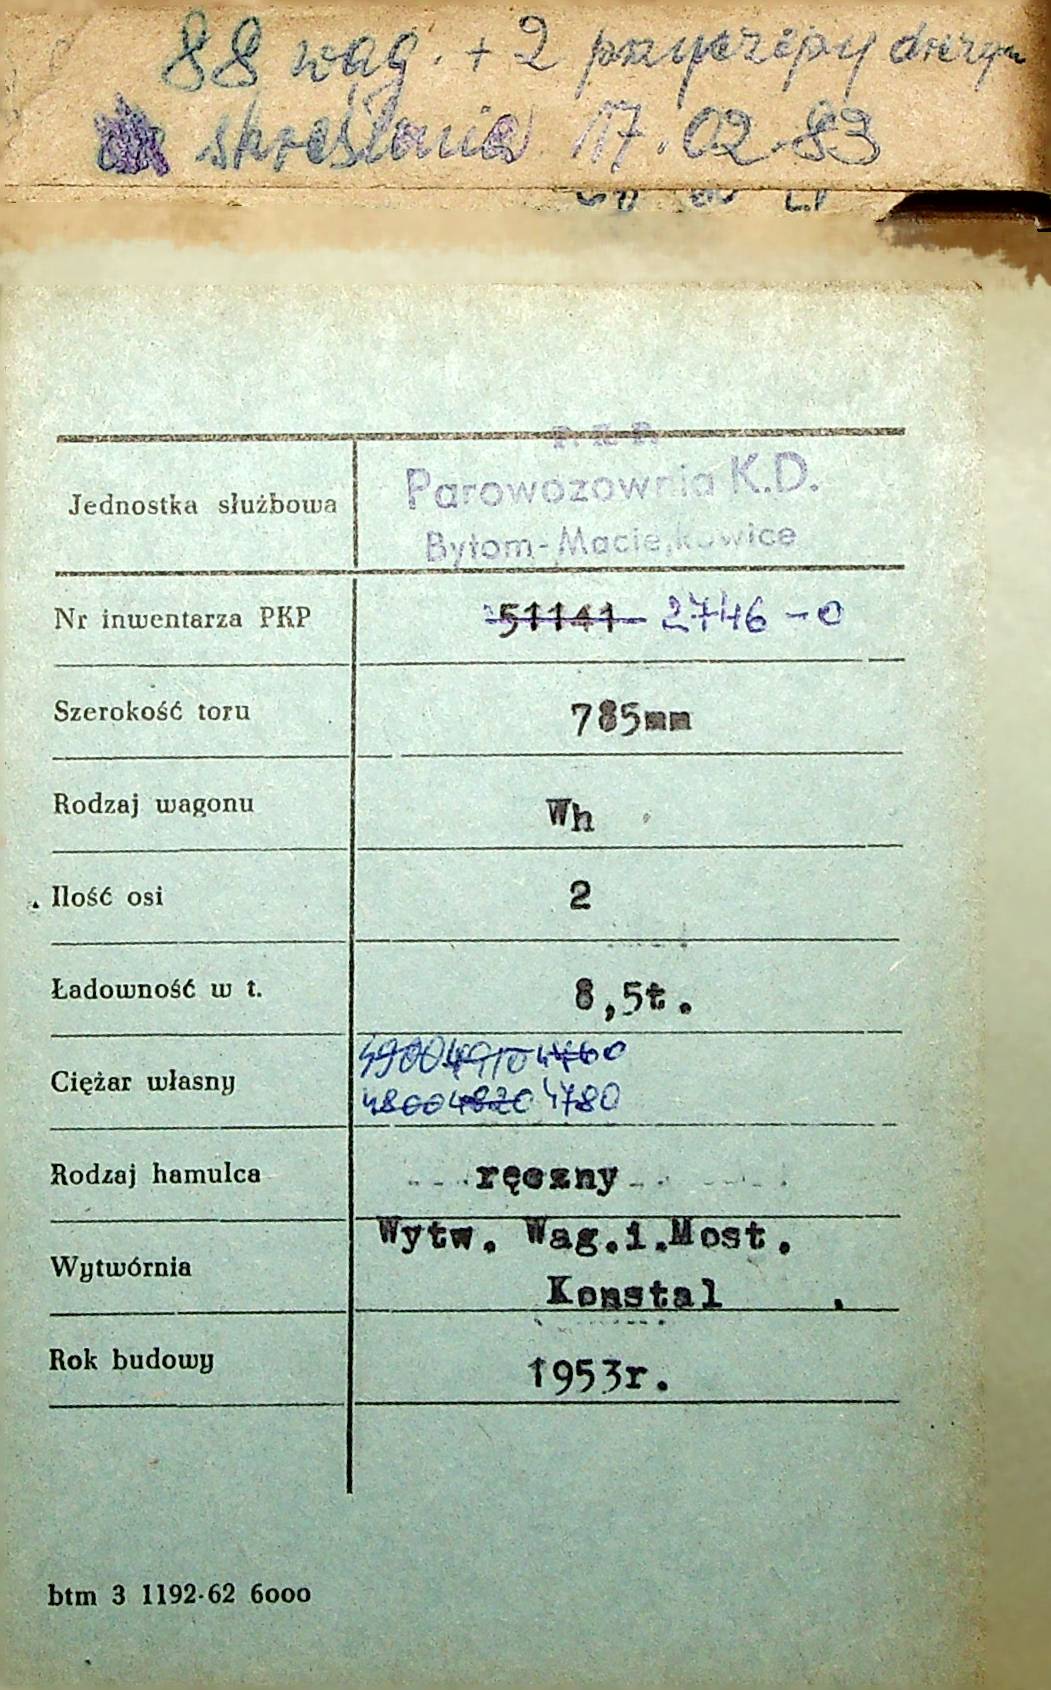 88 wag. + 2 przyczepy drezyn
skreślenia 17.02.83
P.K.P.
Parowozownia K.D.
Bytom-Maciejkowice
Jednostka służbowa
Nr inwentarza PKP 51141 2746-0
Szerokość toru 785mm
Rodzaj wagonu Wh
Ilość osi 2
Ładowność w t. 8,5t.
4900 4910 4760
Ciężar własny
4800 4820 4780
Rodzaj hamulca ręczny
Wytw. Wag.i.Most.
Wytwórnia
Konstal
Rok budowy 1953r.
btm 3 1192-62 6000